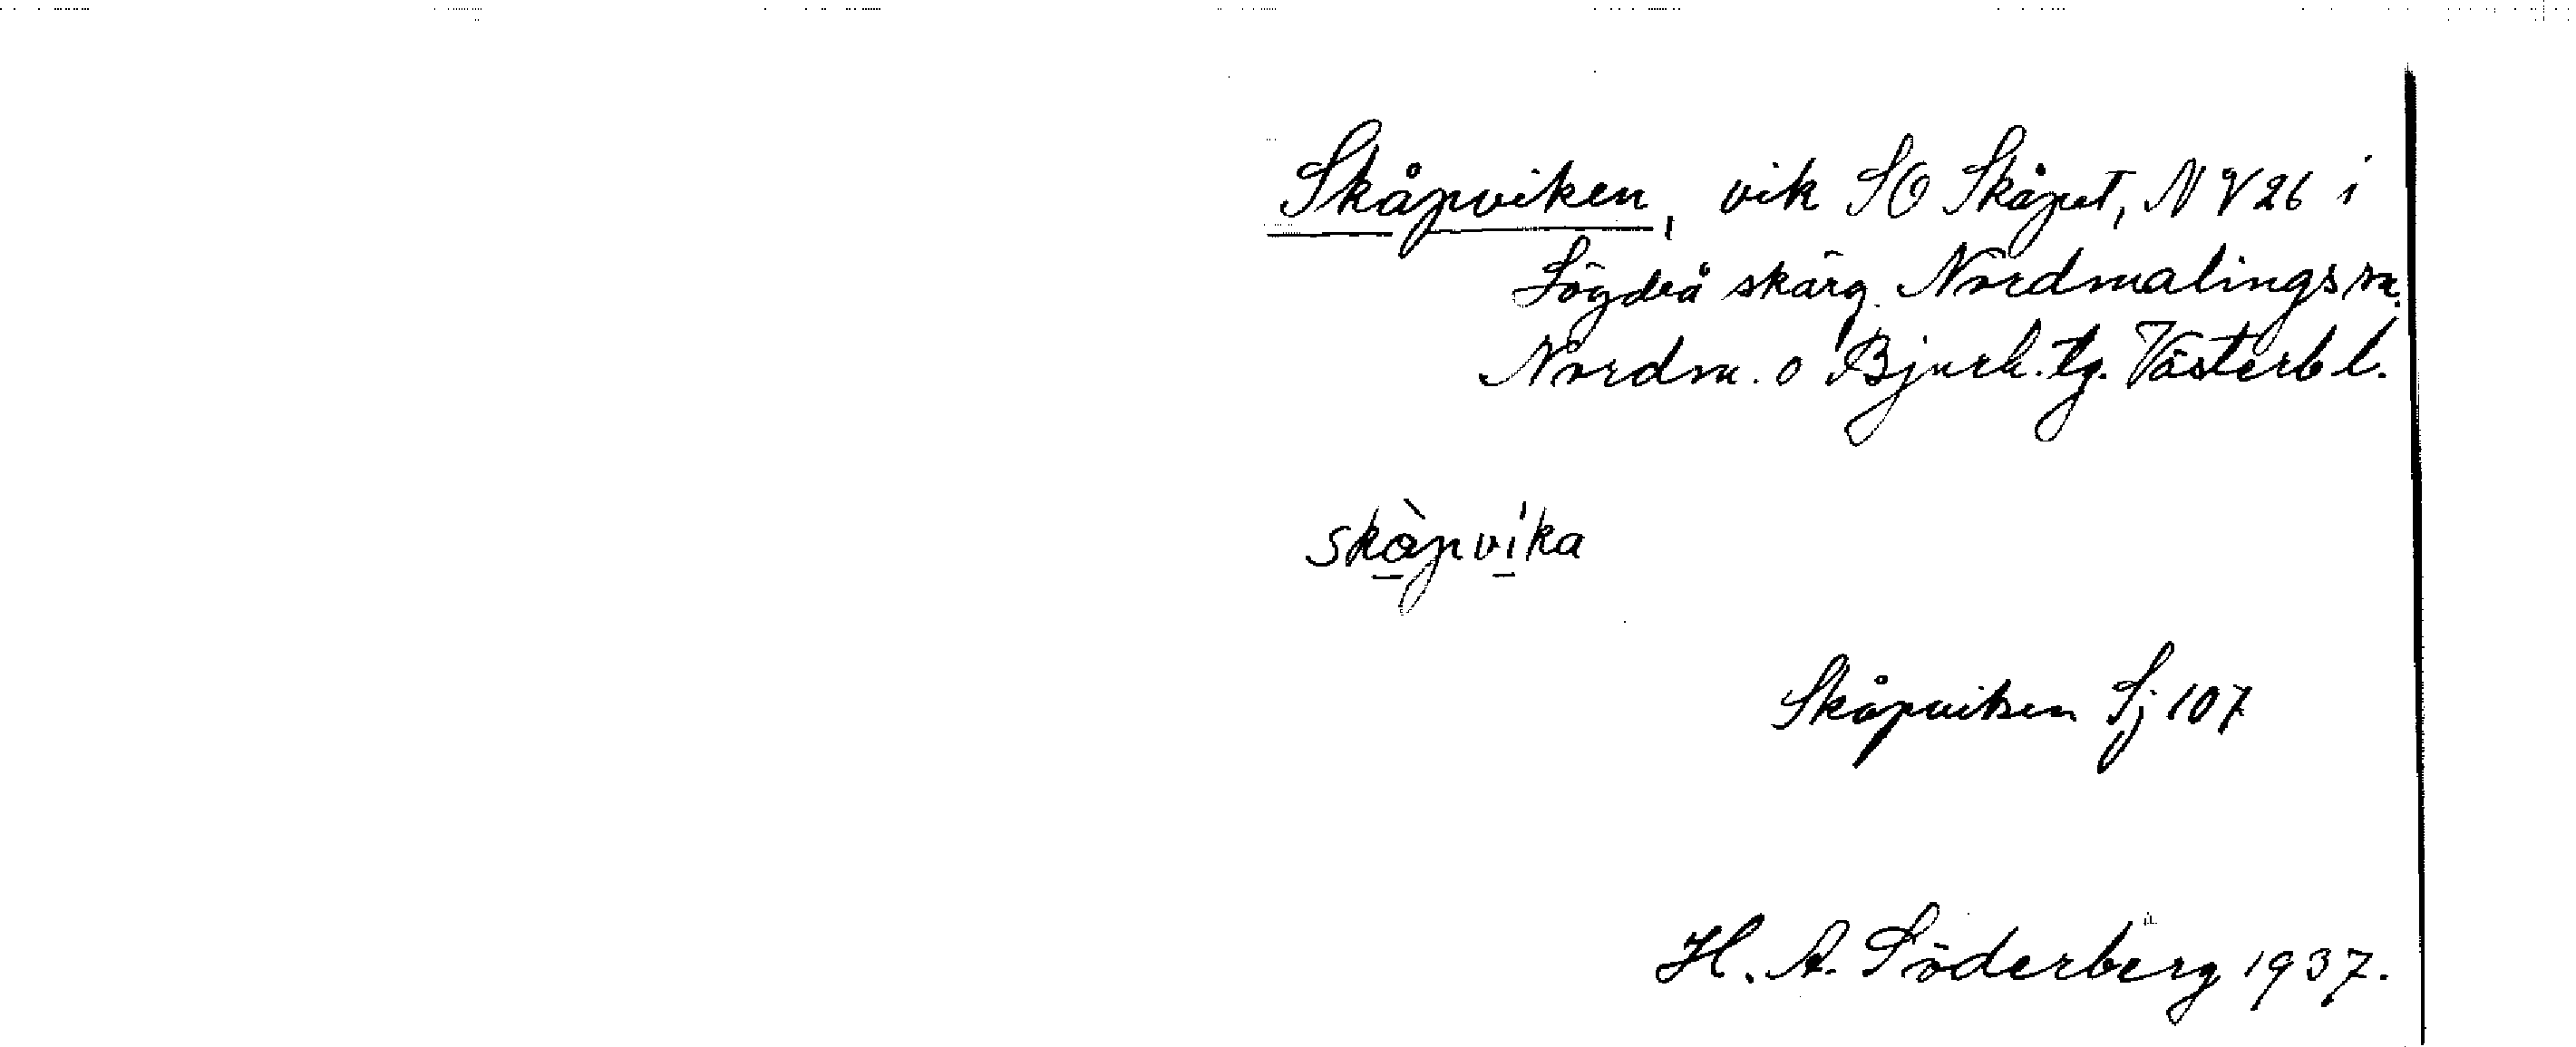 Skåpviken, vik SO Skåpet, NV26 i
Lögdeå skärg. Nordmalings sn.
Nordm. o Bjurh. tg. Västerb l.
skåpvika
Skåpviken Sj 107
H. A. Söderberg 1937.